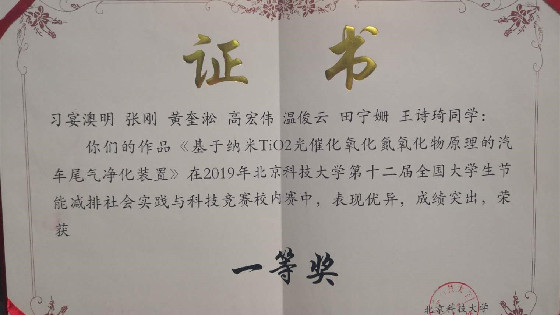 证书
习宴澳明 张刚 黄奎淞 高宏伟 温俊云 田宁姗 王诗琦同学：
你们的作品《基于纳米TiO2光催化氧化氮氧化物原理的汽
车尾气净化装置》在2019年北京科技大学第十二届全国大学生节
能减排社会实践与科技竞赛校内赛中，表现优异，成绩突出，荣
获
一等奖
北京科技大学